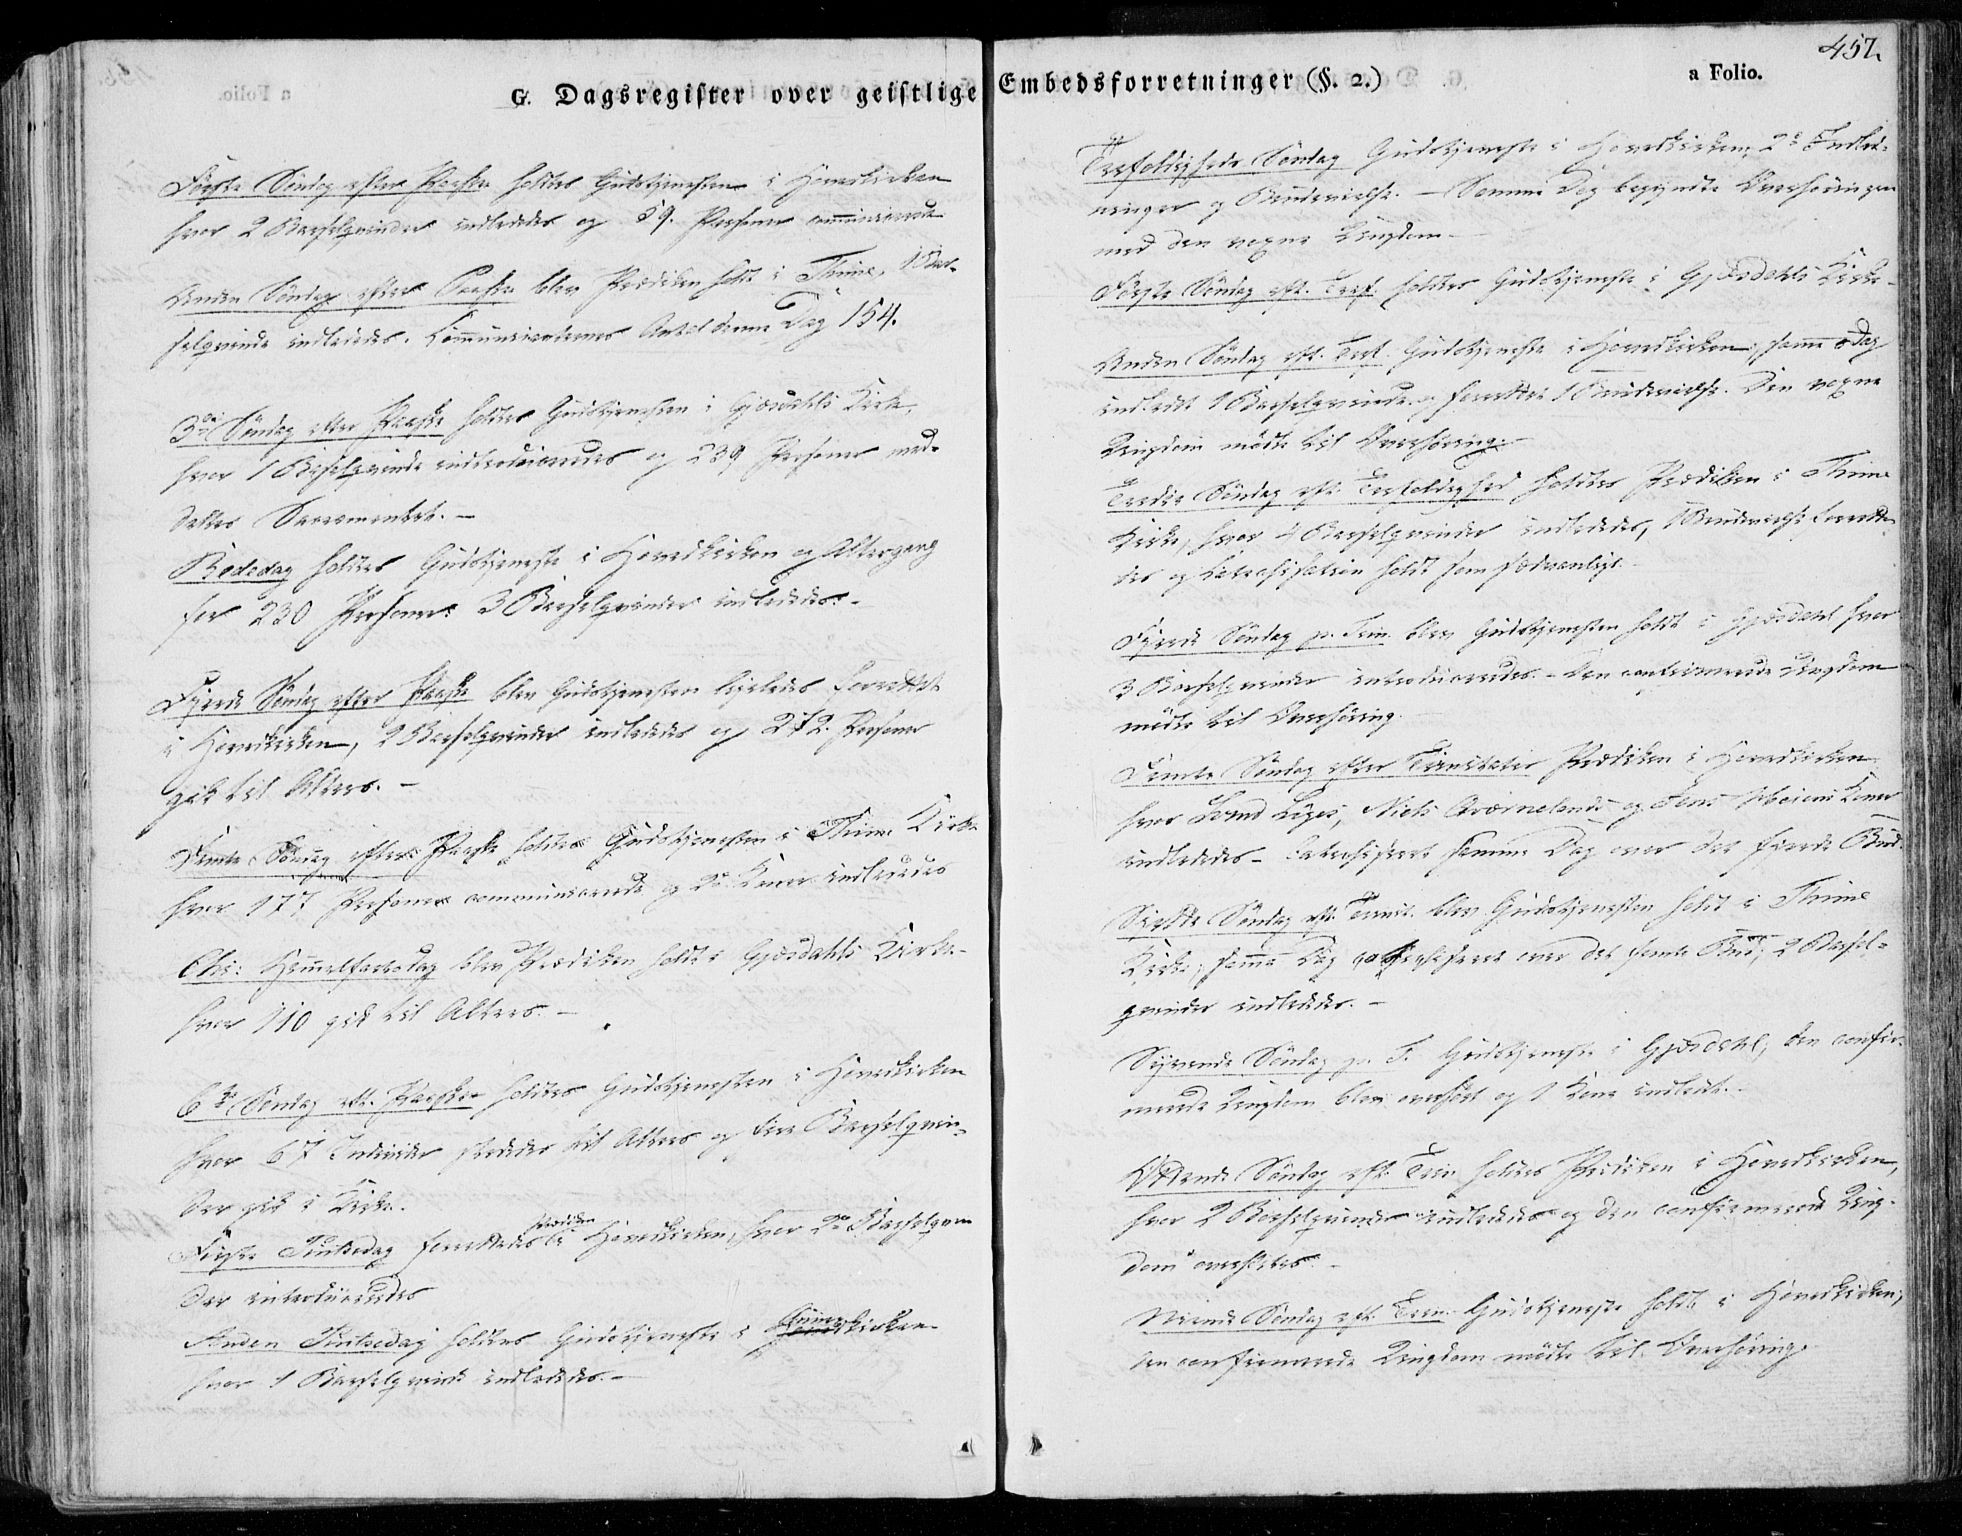 G. Dagsregister over geistlige Embedsforretninger (§. 2.)
457.
a Folio.
Første Søndag efter Paaske holdtes Gudstjenesten i Hovedkirken
hvor 2 Barselqvinder indlededes og 59. Personer communicerede
Anden Søndag efter Paaske blev Prædiken holdt i Thime, 1 Bar-
selqvinde indlededes. Communicanternes Antal denne Dag 154.
3die Søndag efter Paaske holdtes Gudstjenesten i Gjæsdahls Kirke,
hvor 1 Barselqvinde introduceredes og 239 Personer med-
deltes Sacramentet. –
Bededag holdtes Gudstjeneste i Hovedkirken og Altergang
for 230 Personer. 3 Barselqvinder indlededes. –
Fjerde Søndag efter Paaske blev Gudstjenesten ligeledes forrettet
i Hovedkirken, 2 Barselqvinder indlededes og 272. Personer
gik til Alters. –
Femte Søndag efter Paaske holdtes Gudstjenesten i Thime Kirke
hvor 177 Personer communicerede og 2de Koner indlededes
Chr: Himmelfartsdag blev Prædiken holdt i Gjæsdahls Kirke-
hvor 110 gik til Alters. –
6te Søndag eft. Paaske holdtes Gudstjenesten i Hovedkirken
hvor 67 Individer stededes til Alters og fire Barselqvin-
der gik i Kirke.
Første Pintsedag forrettedes Prædiken i Hovedkirken, hvor 2de Barselqvin
der introduceredes
Anden Pintsedag holdtes Gudstjeneste i Thime kirken
hvor 1 Barselqvinde indlededes. –
Trefoldigheds Søndag Gudstjeneste i Hovedkirken, 2de Indled-
ninger og Brudevielse. – Samme Dag begyndte Overhøringen
med den voxne Ungdom –
Første Søndag eft. Tref. holdtes Gudstjeneste i Gjæsdahls Kirke-
Anden Søndag eft. Tref. Gudstjeneste i Hovedkirken, samme Dag
indledet 1 Barselqvinde og forrettet 1 Brudevielse. Den voxne
Ungdom mødte til Overhøring.
Tredie Søndag eft. Trefoldighed holdtes Prædiken i Thime
Kirke, hvor 4 Barselqvinder indlededes, 1 Brudevielse forrette-
des og Catechisation holdt som sædvanligt
Fjerde Søndag p. Trin. blev Gudstjenesten holdt i Gjæsdahl hvor
3 Barselqvinder introduceredes. – Den confirmerede Ungdom
mødte til Overhøring.
Femte Søndag efter Trinitatis Prædiken i Hovedkirken
hvor Niels og Jens Koner
indlededes – Catechiseret samme Dag over det fjerde Bud.
Siette Søndag eft. Trinit. blev Gudstjenesten holdt i Thime
Kirke, samme Dag catechiseret over det femte Bud; 2 Barsel-
qvinder indlededes. –
Syvende Søndag p. T. Gudstjeneste i Gjæsdahl, den confir-
merede Ungdom blev overhørt og 1 Kone indledt. –
Ottende Søndag eft. Trin. holdtes Prædiken i Hovedkirken,
hvor 2 Barselqvinder indlededes og den confirmerede Ung-
dom overhørtes. –
Niende Søndag eft. Trin. Gudstjeneste holdt i Hovedkirken,
den confirmerede Ungdom mødte til Overhøring.